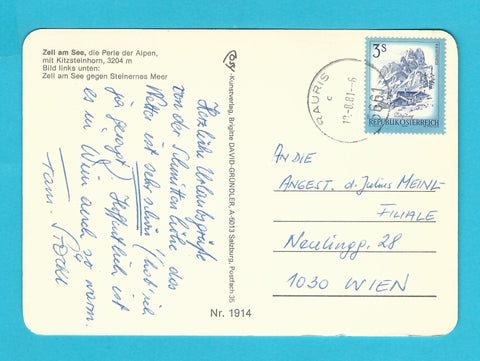 Zell am See, die Perle der Alpen,
mit Kitzsteinhorn, 3204 m
Bild links unten:
Zell am See gegen Steinernes Meer
Herzliche Urlaubsgrüße
von der Schmittenhöhe das
Wetter ist sehr schön (hab' ich
ja gesagt) Hoffentlich ist
es in Wien auch so warm.
Fam.
-Kunstverlag, Brigitte DAVID-GRÜNDLER, A-5013 Salzburg, Postfach 35
Nr. 1914
RAURIS
c
5661
3S
REPUBLIK ÖSTERREICH
AN DIE
ANGEST. d. Julius MEINL-
FILIALE
Neulingg. 28
1030 WIEN